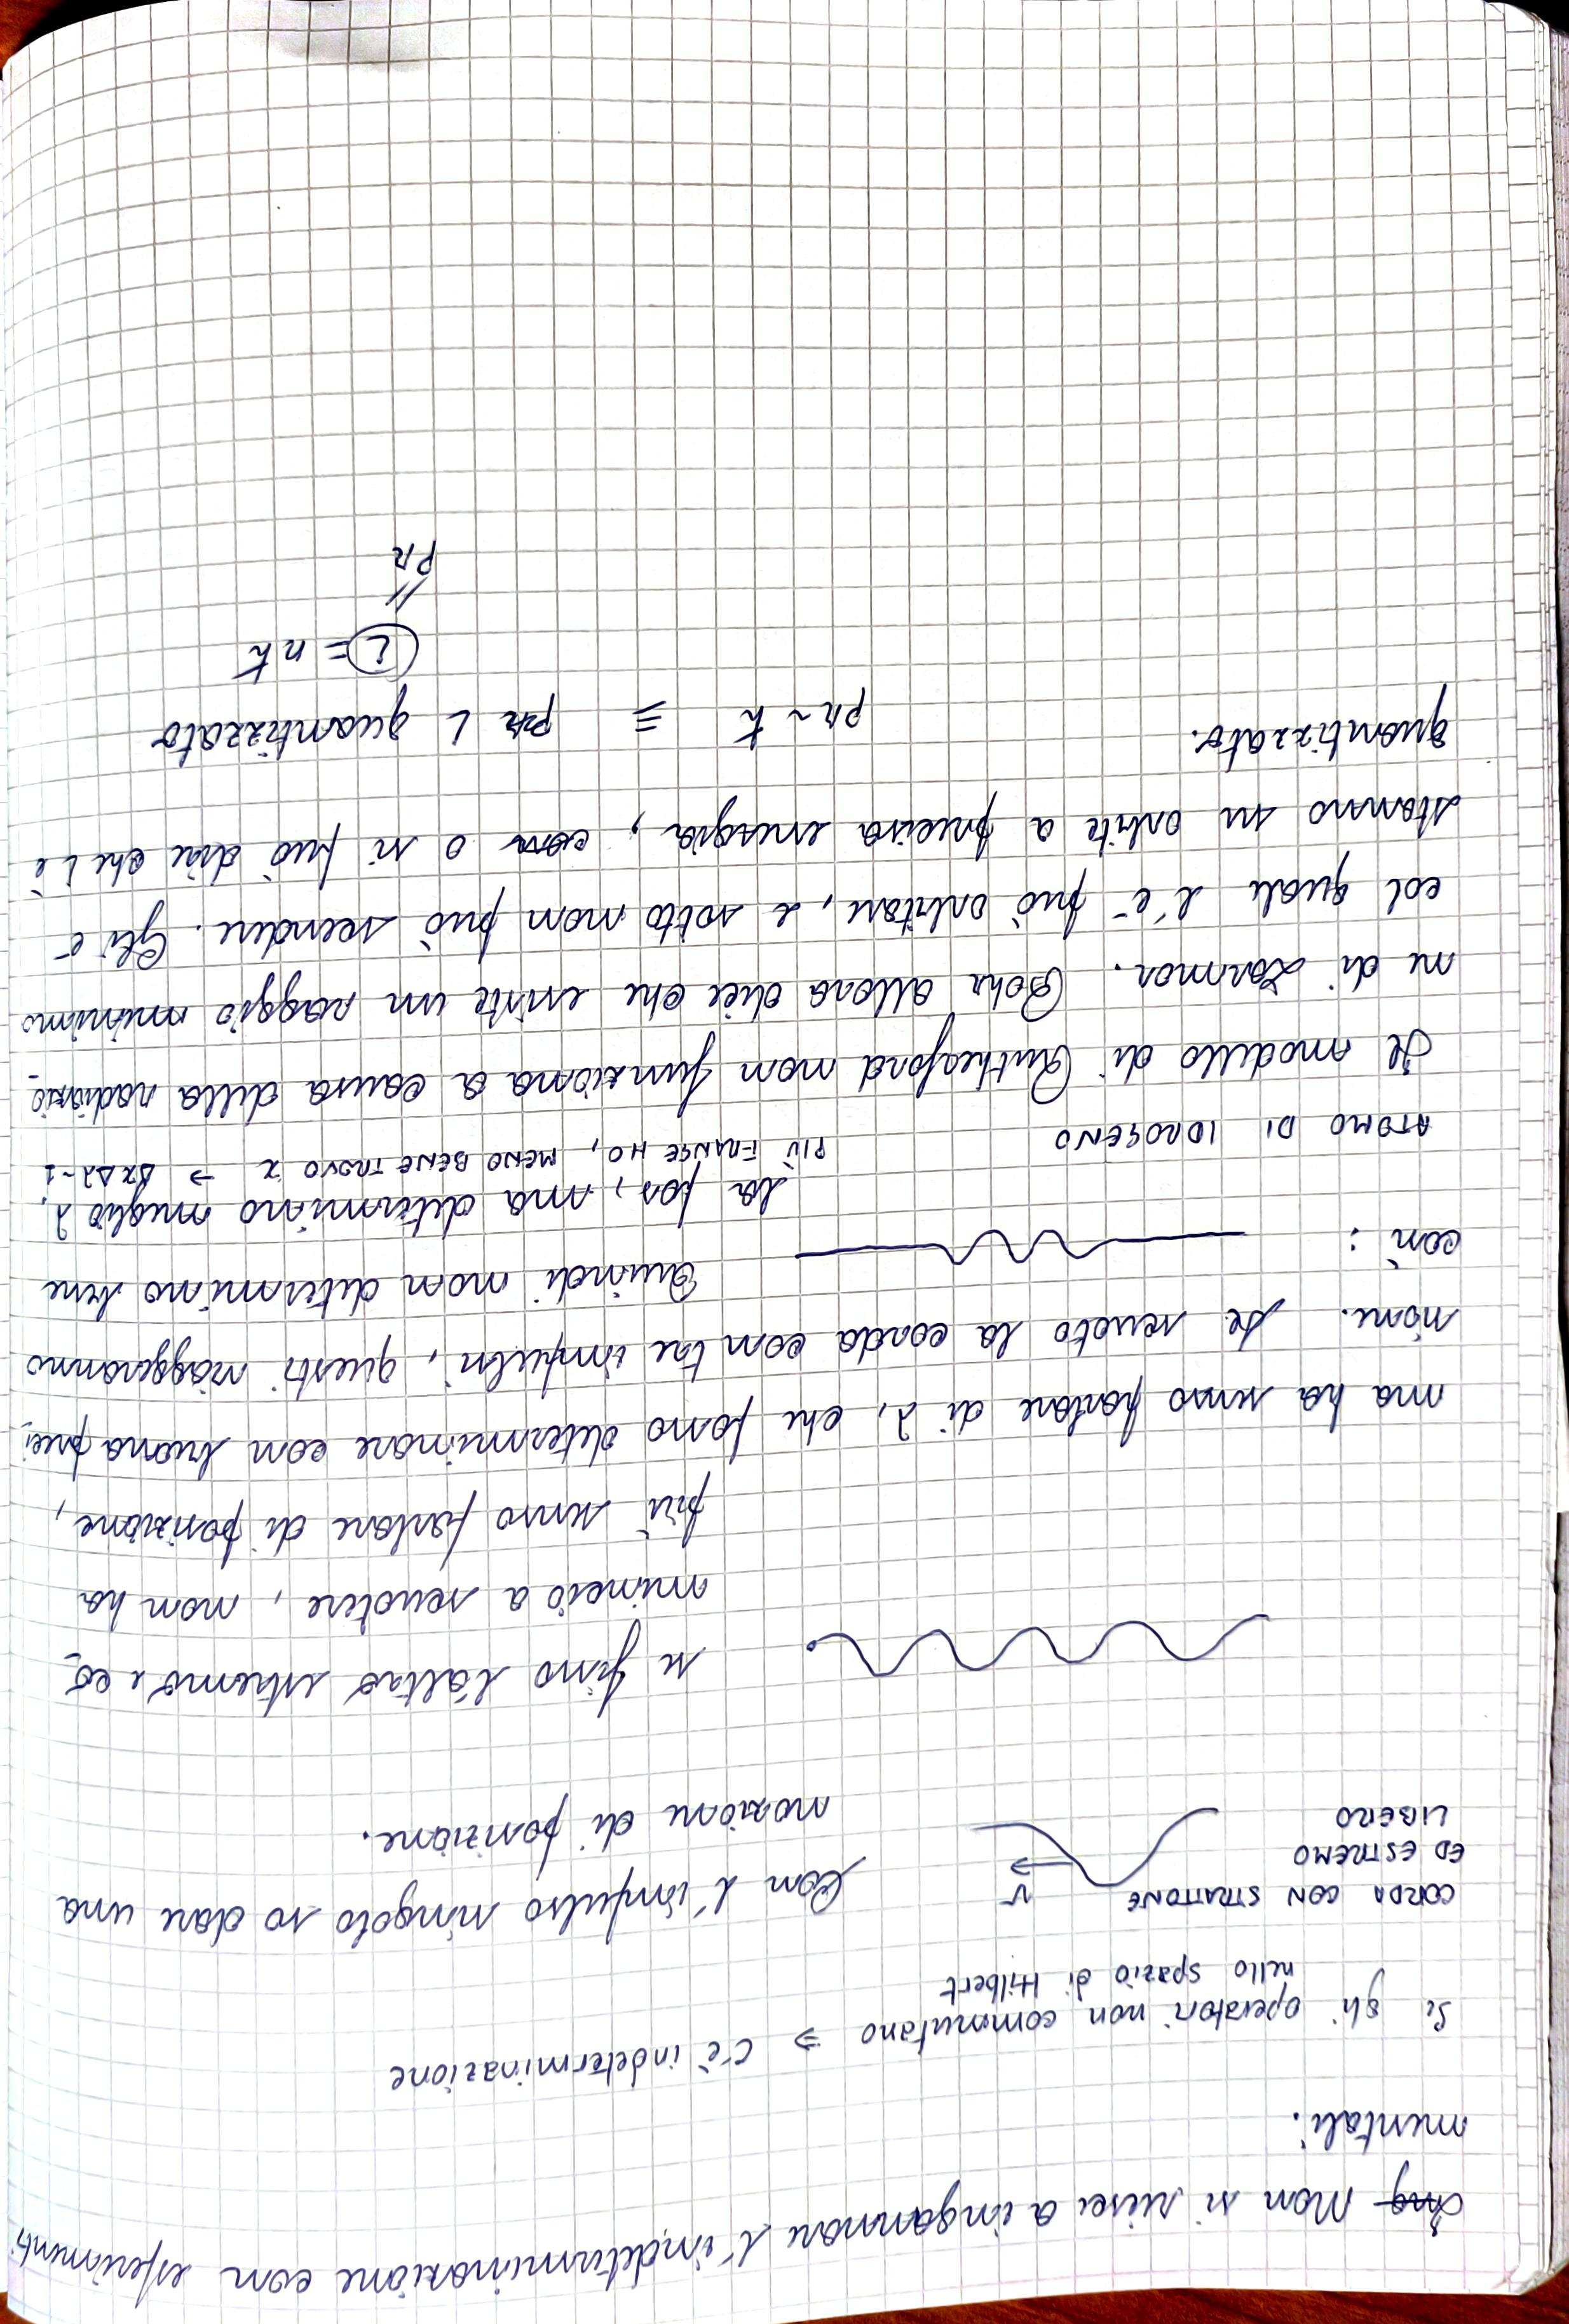 Ing Non si riesce a ingannare l'indeterminazione con esperimenti
mentali.
Se gli operatori non commutano ⇒ c'è indeterminazione
nello spazio di Hilbert
CORDA CON STRATTONE
ED ESTREMO
LIBERO
v
Con l'impulso singolo so dare una
nozione di posizione.
se fisso l'altro estremo e co-
mincio a scuotere, non ha
più senso parlare di posizione,
ma ha senso parlare di λ, che posso determinare con buona preci-
sione. Se scuoto la corda con tre impulsi, questi viaggeranno
così :
Quindi non determino bene
la pos, ma determino meglio λ.
PIÙ FRANGE HO, MENO BENE TROVO x → Δx Δλ ~ 1
ATOMO DI IDROGENO
Il modello di Rutherford non funziona a causa della radiazio-
ne di Larmor. Bohr allora dice che esiste un raggio minimo
col quale l'e⁻ può orbitare, e sotto non può scendere. Gli e⁻
stanno su orbite a precisa energia, con o si può dire che L è
quantizzato.
pr ~ ħ ≡ pr L quantizzato
L = nħ
//
pr